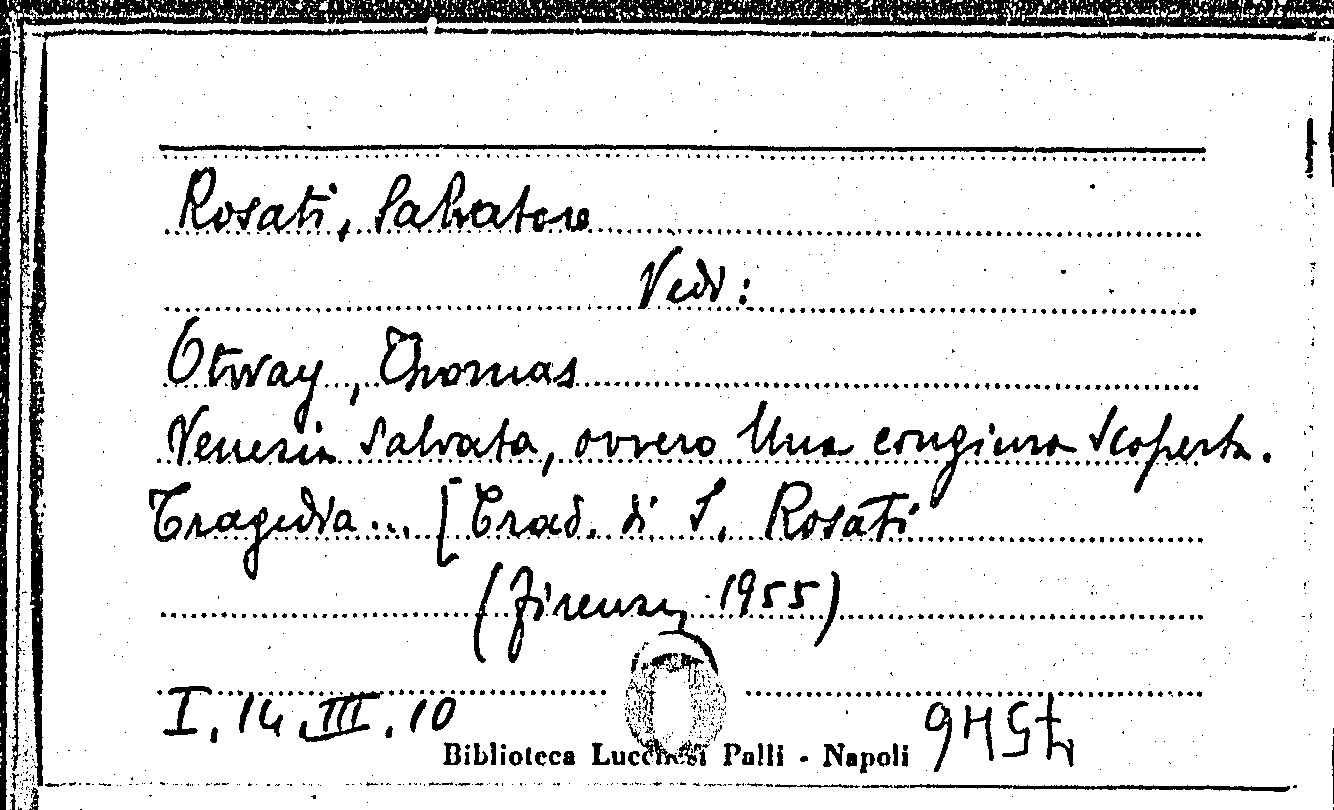 Rosati, Salvatore
Vedi:
Otway, Thomas
Venezia salvata, ovvero Una congiura scoperta.
Tragedia... [Trad. di S. Rosati
(Firenze, 1955)
I. 14. III. 10
Biblioteca Lucchesi Palli - Napoli